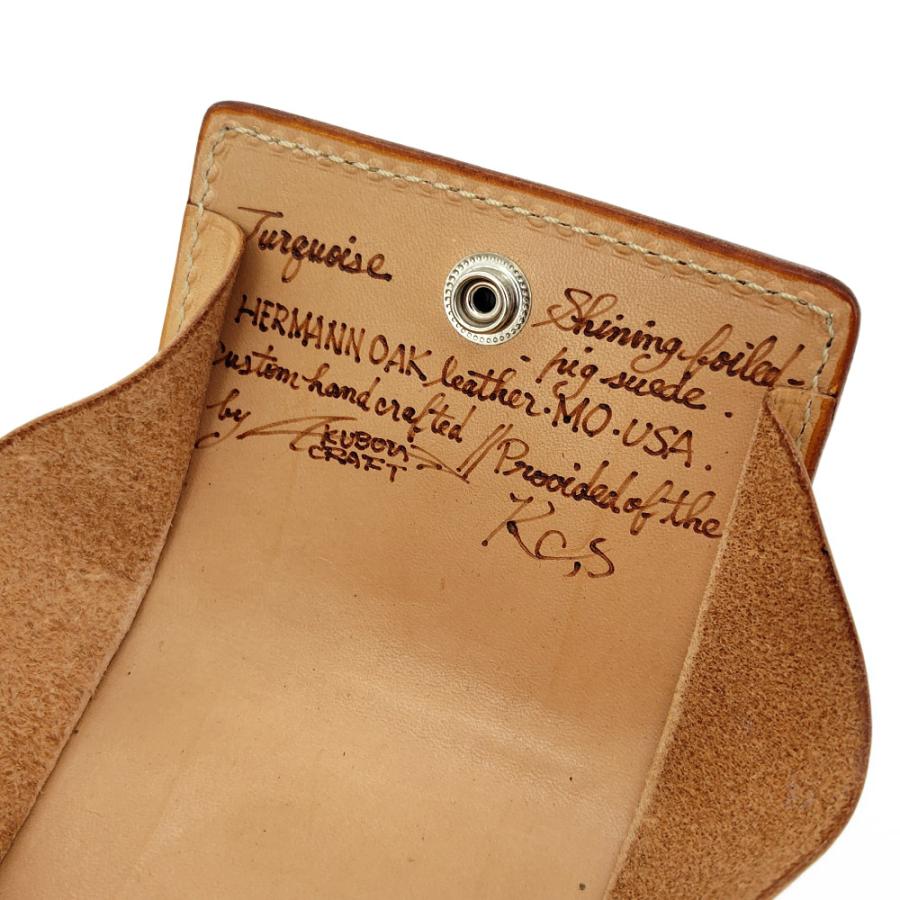 Turquoise
Shining foiled-
pig suede.
HERMANN OAK leather·MO·USA.
Custom handcrafted
by KUBON
CRAFT
//Provided of the
KC,S